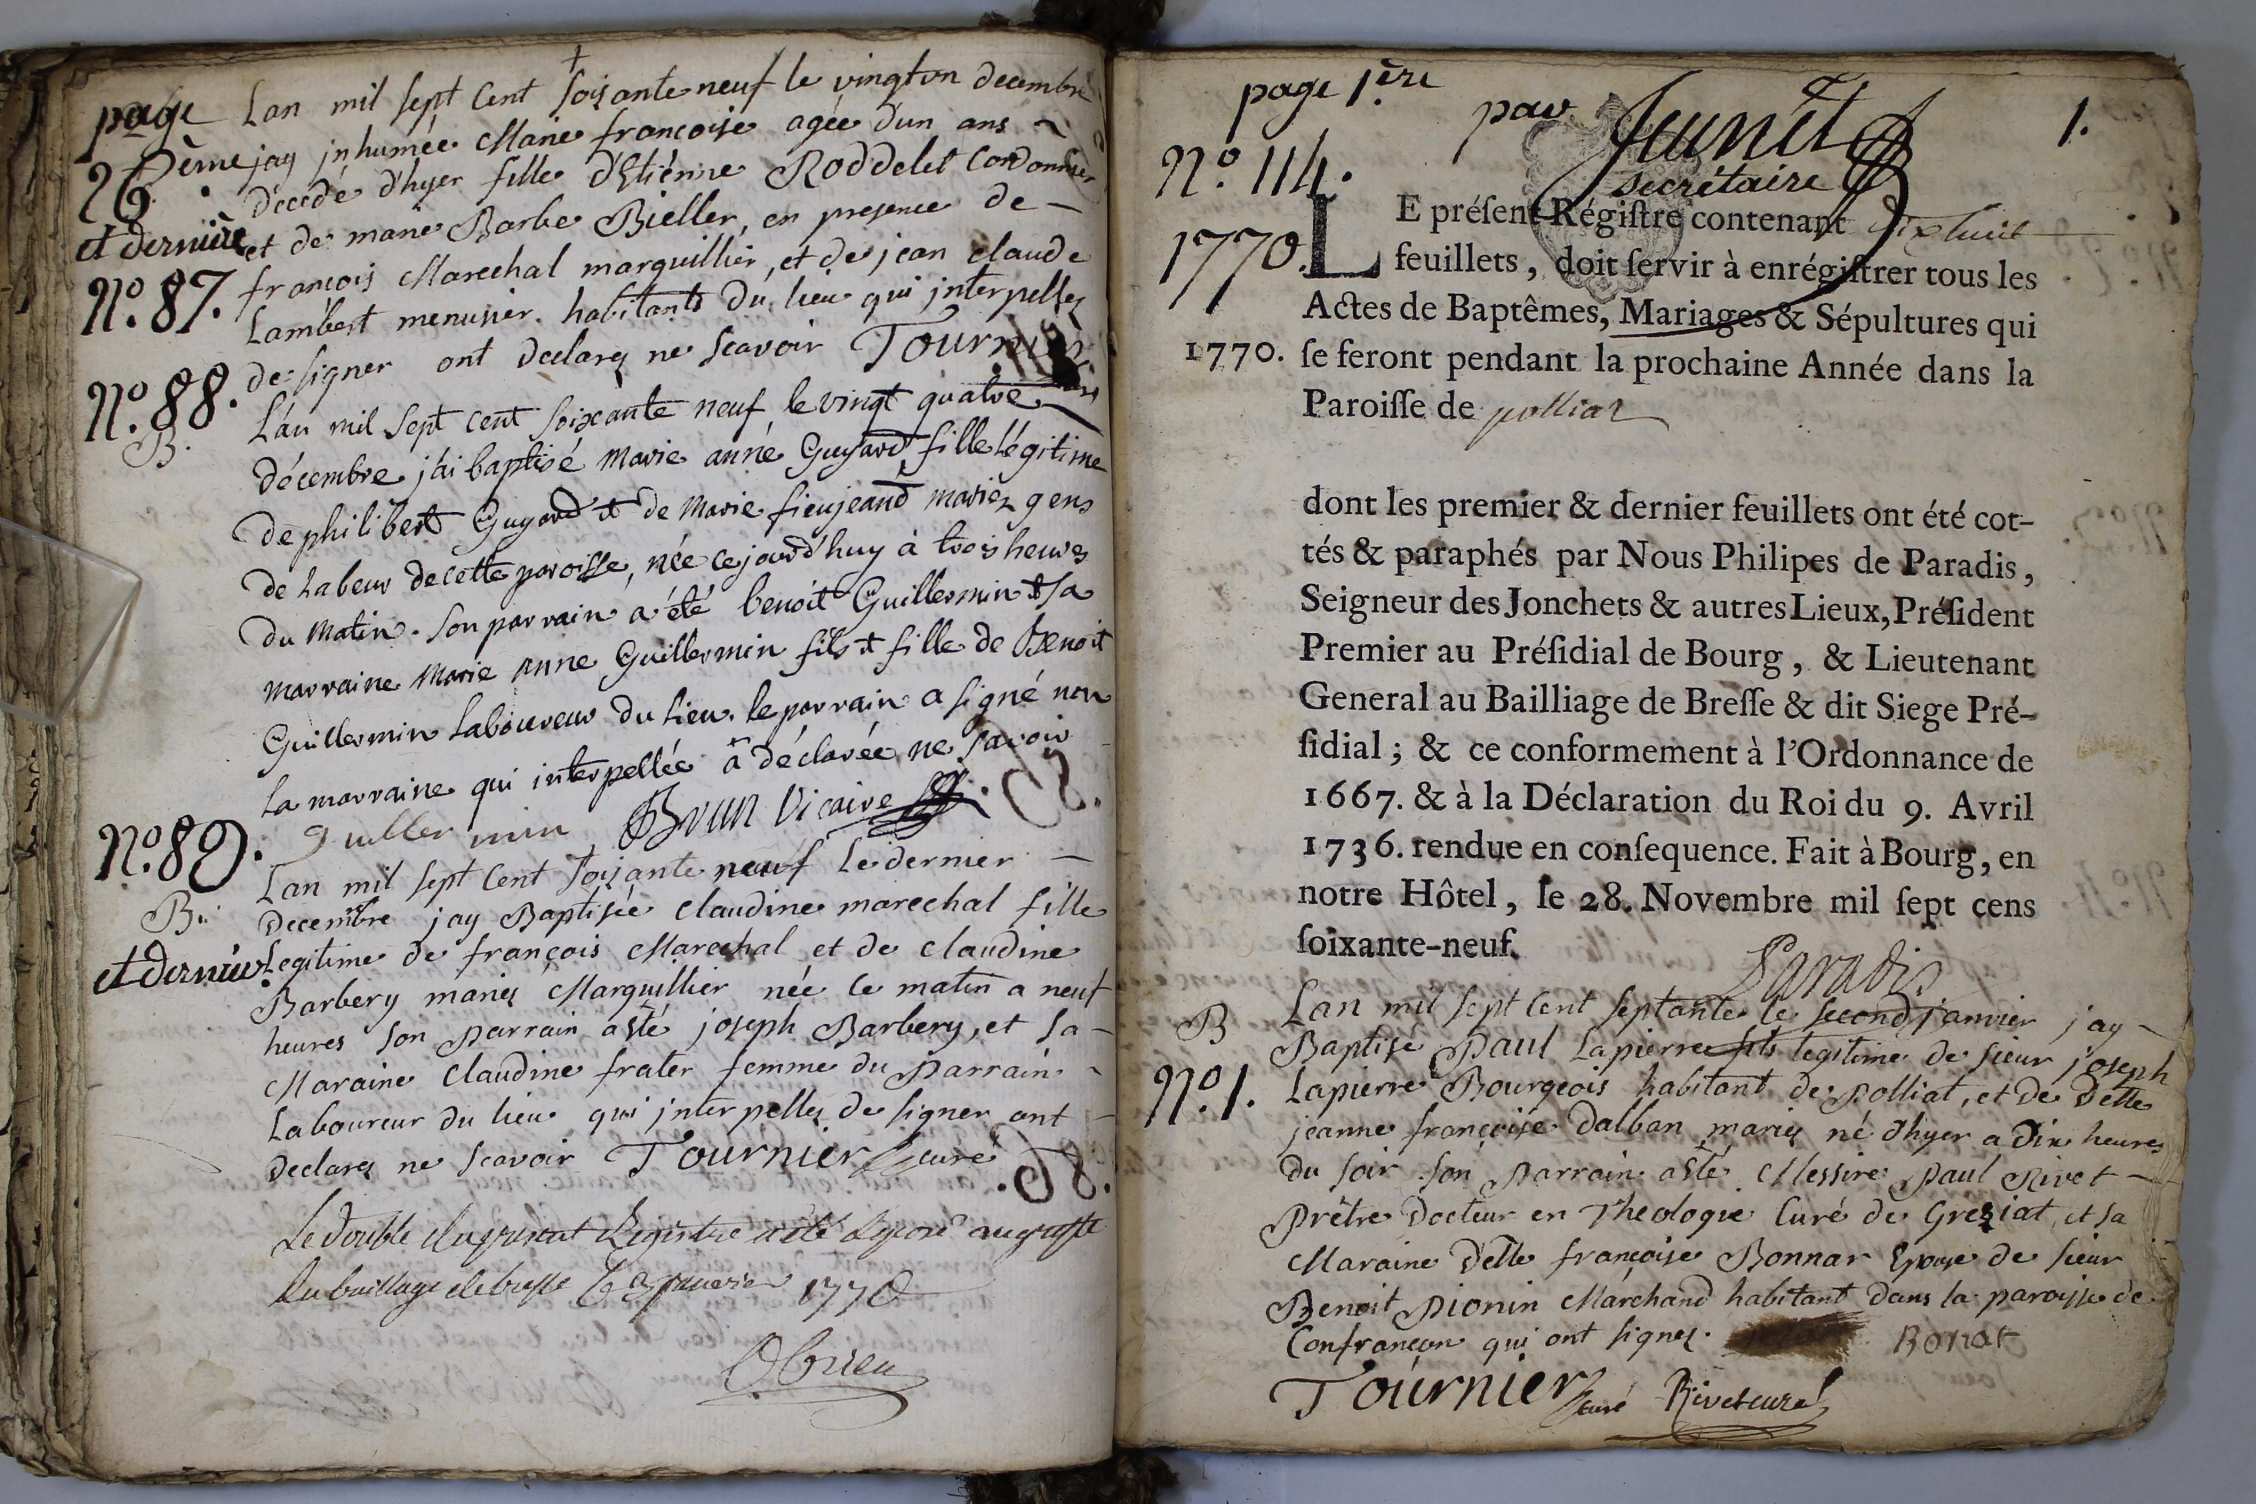 page
26ème
et dernière
N°. 87.
Lan mil sept Cent soisante neuf le vington decembre
jay jnhumée Marie francoise agée d'un ans ~
décédé d'hyer fille d'Etiénne Roddelet Cordonnier
et de marie Barbe Bieller, en presence de —
francois Marechal marguillier, et de jean claude
Lambert menusier. habitants du lieu qui jnterpellez
de signer ont declarez ne scavoir Tournier
N°. 88.
B.
L'an mil sept cent soixante neuf le vingt quatre
décembre j'ai baptisé Marie anne Guyard fille légitime
de philibert Guyard et de Marie fieujeand mariez gens
de labeur de cette paroisse, née ce jourd'huy à trois heures
du matin. son parrain a été benoit Guillermin et sa
marraine Marie Anne Guillermin fils et fille de Benoit
Guillermin laboureur du lieu. le parrain a signé non
la marraine qui interpellée a déclarée ne savoir
Guillermin Brun Vicaire
N°. 89.
B.
et dernier.
Lan mil sept Cent soisante neuf Le dernier —
decembre jay Baptisée Claudine marechal fille
Legitime de françois Marechal et de Claudine
Barbery mariez Marguillier née ce matin a neuf
heures son parrain a esté joseph Barbery, et sa —
Maraine Claudine frater femme du parrain ~
Laboureur du lieu qui jnterpellez de signer ont —
declarez ne scavoir Tournier curé
Le double du present Registre a été déposé au greffe
du bailliage de bresse le janvier 1770
page 1ère
par Jeunet
secrétaire
1.
N°. 114.
1770.
LE préſent Régiſtre contenant dix huit
feuillets, doit ſervir à enrégiſtrer tous les
Actes de Baptêmes, Mariages & Sépultures qui
1770. ſe feront pendant la prochaine Année dans la
Paroiſſe de polliat
dont les premier & dernier feuillets ont été cot-
tés & paraphés par Nous Philipes de Paradis,
Seigneur des Jonchets & autres Lieux, Préſident
Premier au Préſidial de Bourg, & Lieutenant
General au Bailliage de Breſſe & dit Siege Pré-
ſidial; & ce conformement à l'Ordonnance de
1667. & à la Déclaration du Roi du 9. Avril
1736. rendue en conſequence. Fait à Bourg, en
notre Hôtel, le 28. Novembre mil ſept cens
ſoixante-neuf.
Paradis
B
N°. 1.
Lan mil sept Cent septante le second janvier jay —
Baptisé Paul Lapierre fils legitime de sieur joseph
Lapierre Bourgeois habitant de Polliat, et de delle
jeanne françoise Dalban mariez né d'hyer a Dix heures
du soir son parrain a esté Messire Paul Rivet —
Prêtre Docteur en Theologie Curé de Greziat, et sa
Maraine Delle françoise Bonnar Epouse de sieur
Benoit Pionin Marchand habitant dans la paroisse de
Confrançon qui ont signez. Bonar
Tournier curé Rivet curé